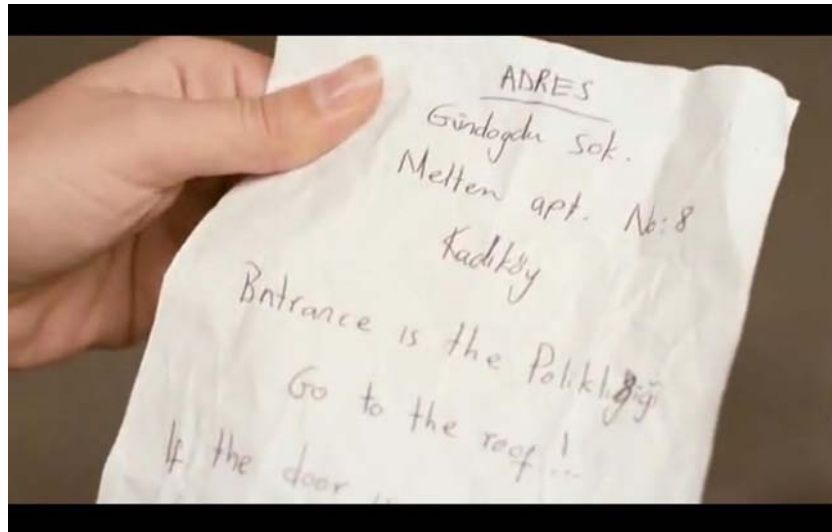 ADRES
Gündogdu sok.
Melten apt. No:8
Kadıköy
Entrance is the
Go to the roof!...
If the door